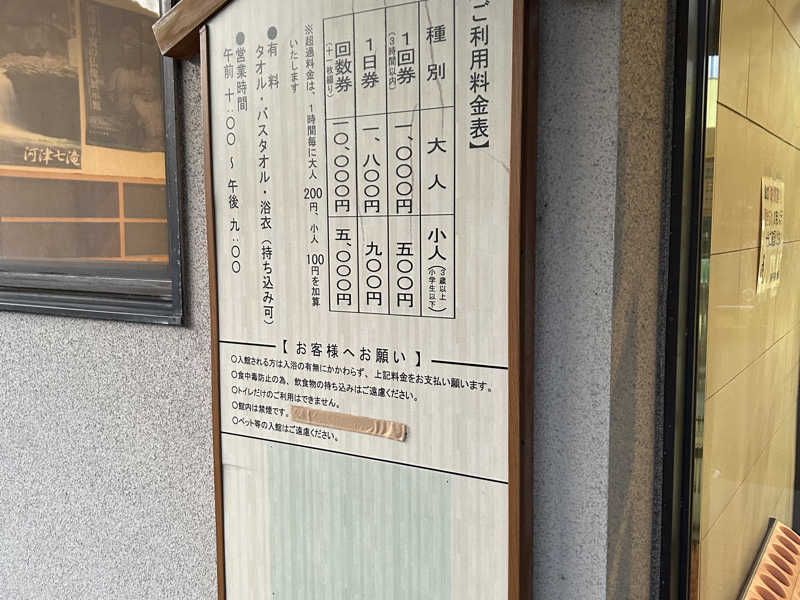 【ご利用料金表】
種別 大人 小人(3歳以上小学生以下)
1回券(3時間以内) 一、〇〇〇円 五〇〇円
1日券 一、八〇〇円 九〇〇円
回数券(十一枚綴り) 一〇、〇〇〇円 五、〇〇〇円
※超過料金は、1時間毎に大人 200円、小人 100円を加算
いたします
●有 料
タオル・バスタオル・浴衣(持ち込み可)
●営業時間
午前 十:〇〇 〜 午後 九:〇〇
【お客様へお願い】
○入館される方は入浴の有無にかかわらず、上記料金をお支払い願います。
○食中毒防止の為、飲食物の持ち込みはご遠慮ください。
○トイレだけのご利用はできません。
○館内は禁煙です。
○ペット等の入館はご遠慮ください。
河津七滝